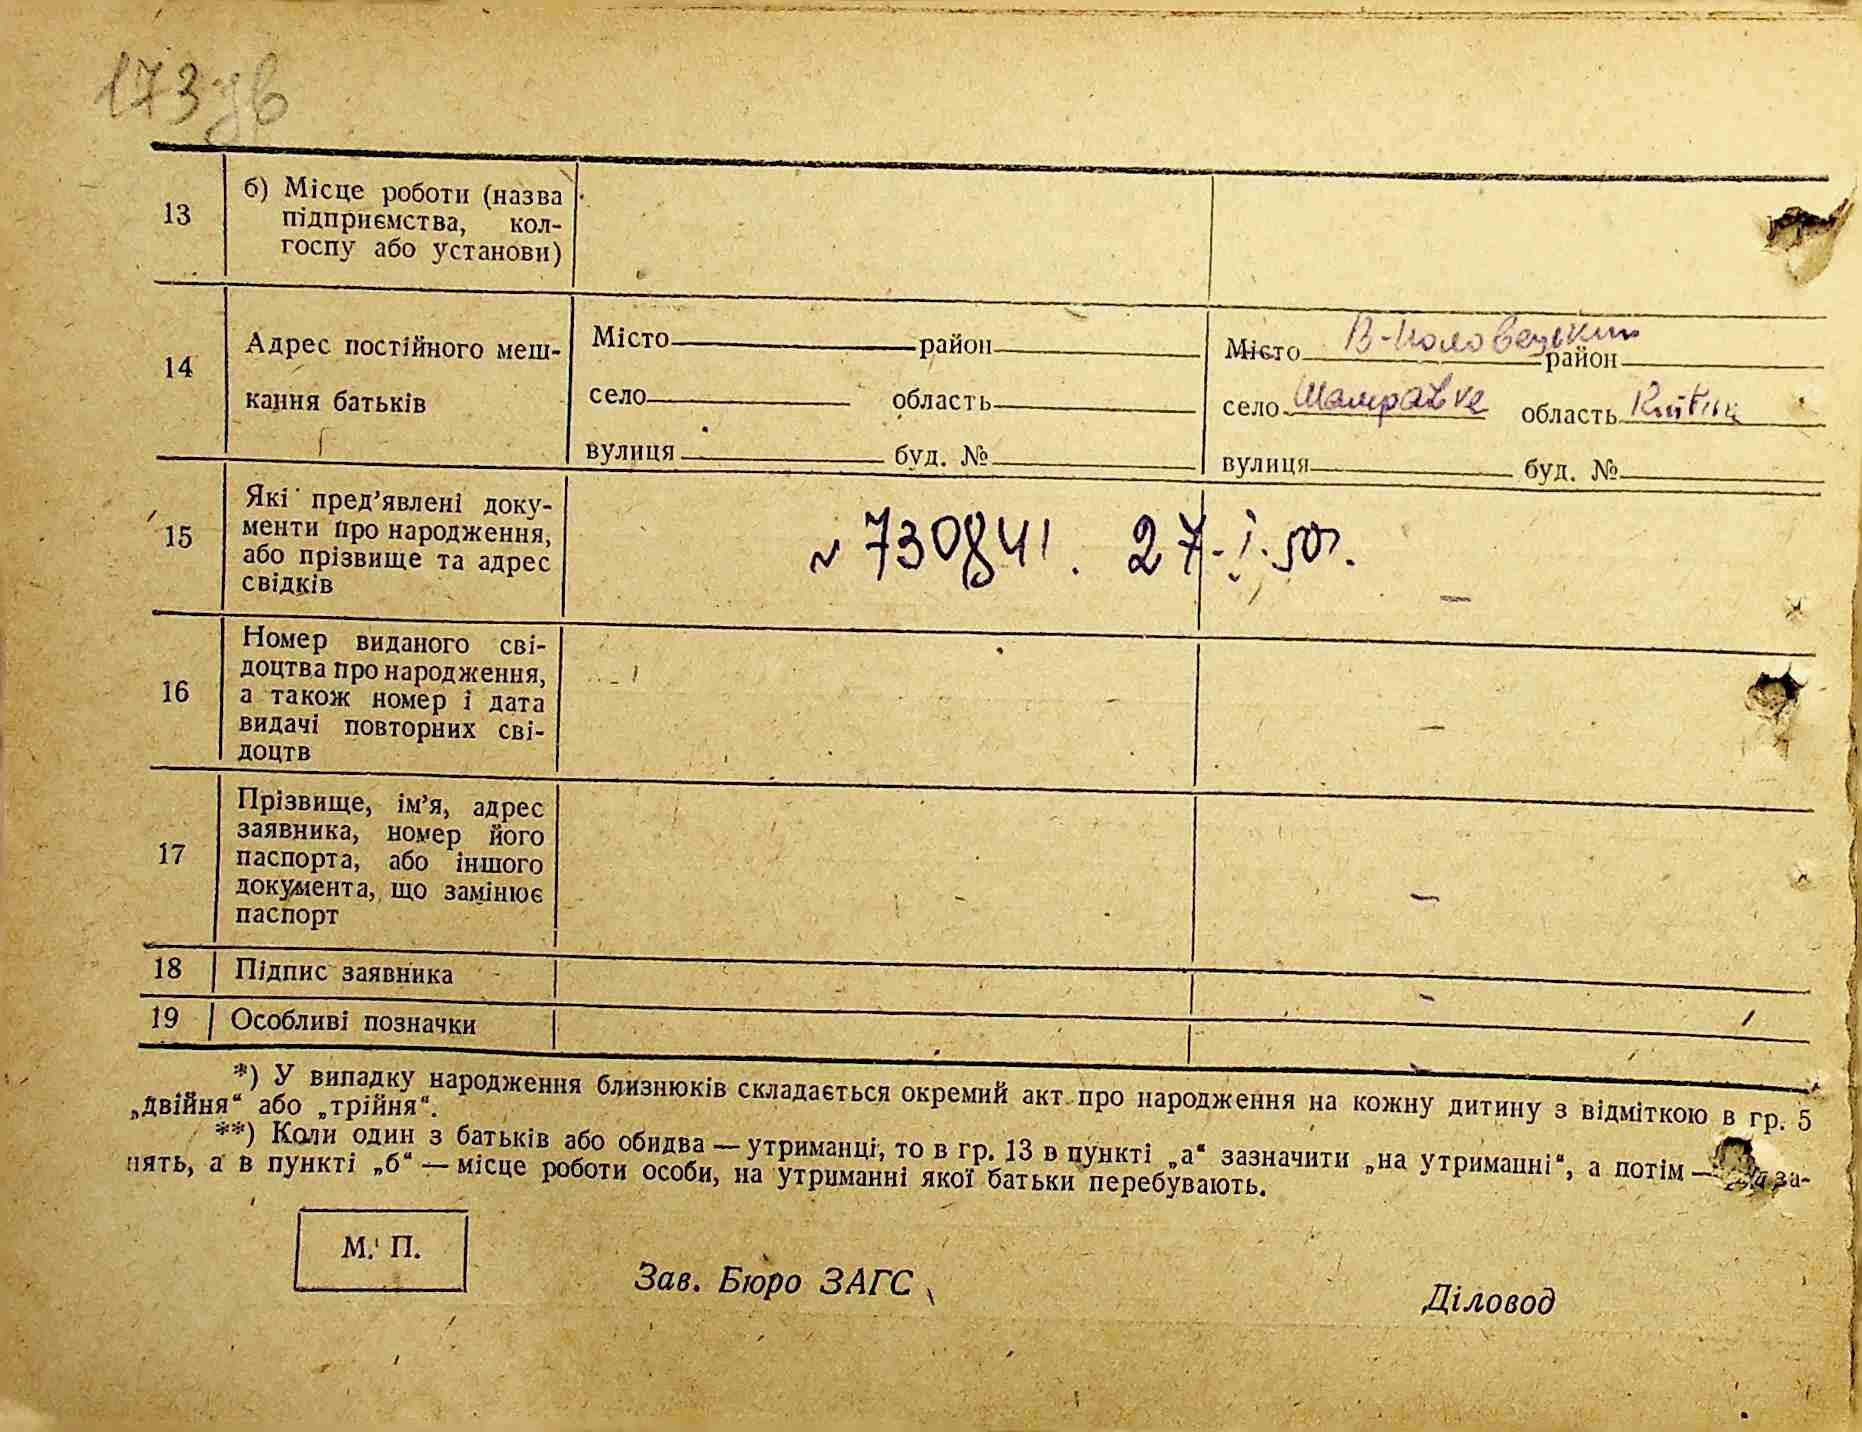 173 зв
13
б) Місце роботи (назва
підприємства, кол-
госпу або установи)
14
Адрес постійного меш-
кання батьків
Місто район
село область
вулиця буд. №
В-Половецький
Місто район
село Шамраївка область Київськ
вулиця буд. №
15
Які пред’явлені доку-
менти про народження,
або прізвище та адрес
свідків
№ 730841. 27-I-50г. –
16
Номер виданого сві-
доцтва про народження,
а також номер і дата
видачі повторних сві-
доцтв
–
17
Прізвище, ім’я, адрес
заявника, номер його
паспорта, або іншого
документа, що замінює
паспорт
–
18 Підпис заявника
19 Особливі позначки
*) У випадку народження близнюків складається окремий акт про народження на кожну дитину з відміткою в гр. 5
„двійня“ або „трійня“.
**) Коли один з батьків або обидва — утриманці, то в гр. 13 в пункті „а“ зазначити „на утриманні“, а потім — за-
нять, а в пункті „б“ — місце роботи особи, на утриманні якої батьки перебувають.
М. П.
Зав. Бюро ЗАГС
Діловод